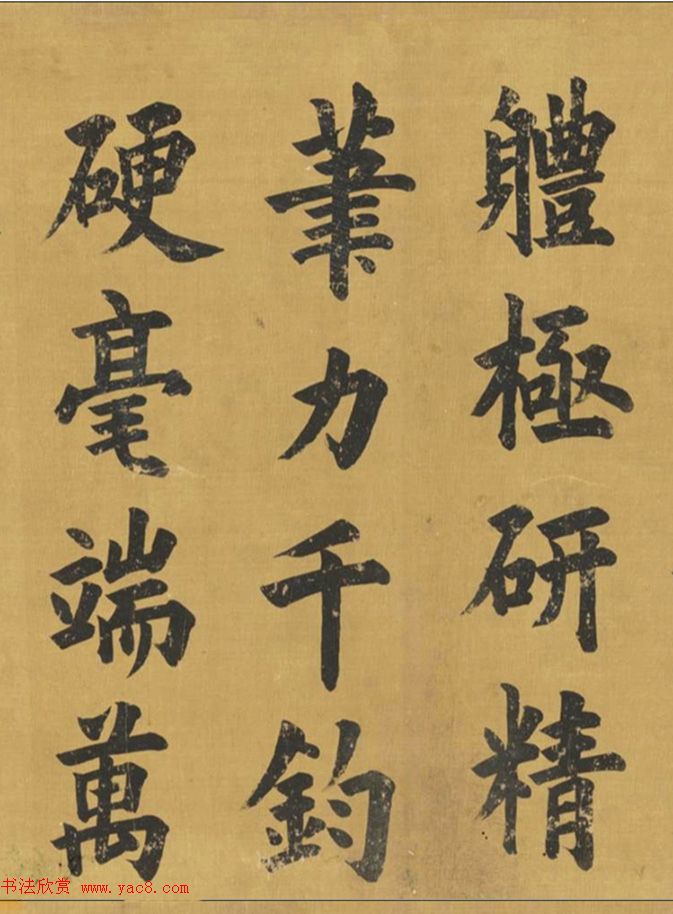 軆極研精
筆力千鈞
硬毫端萬
书法欣赏 www.yac8.com